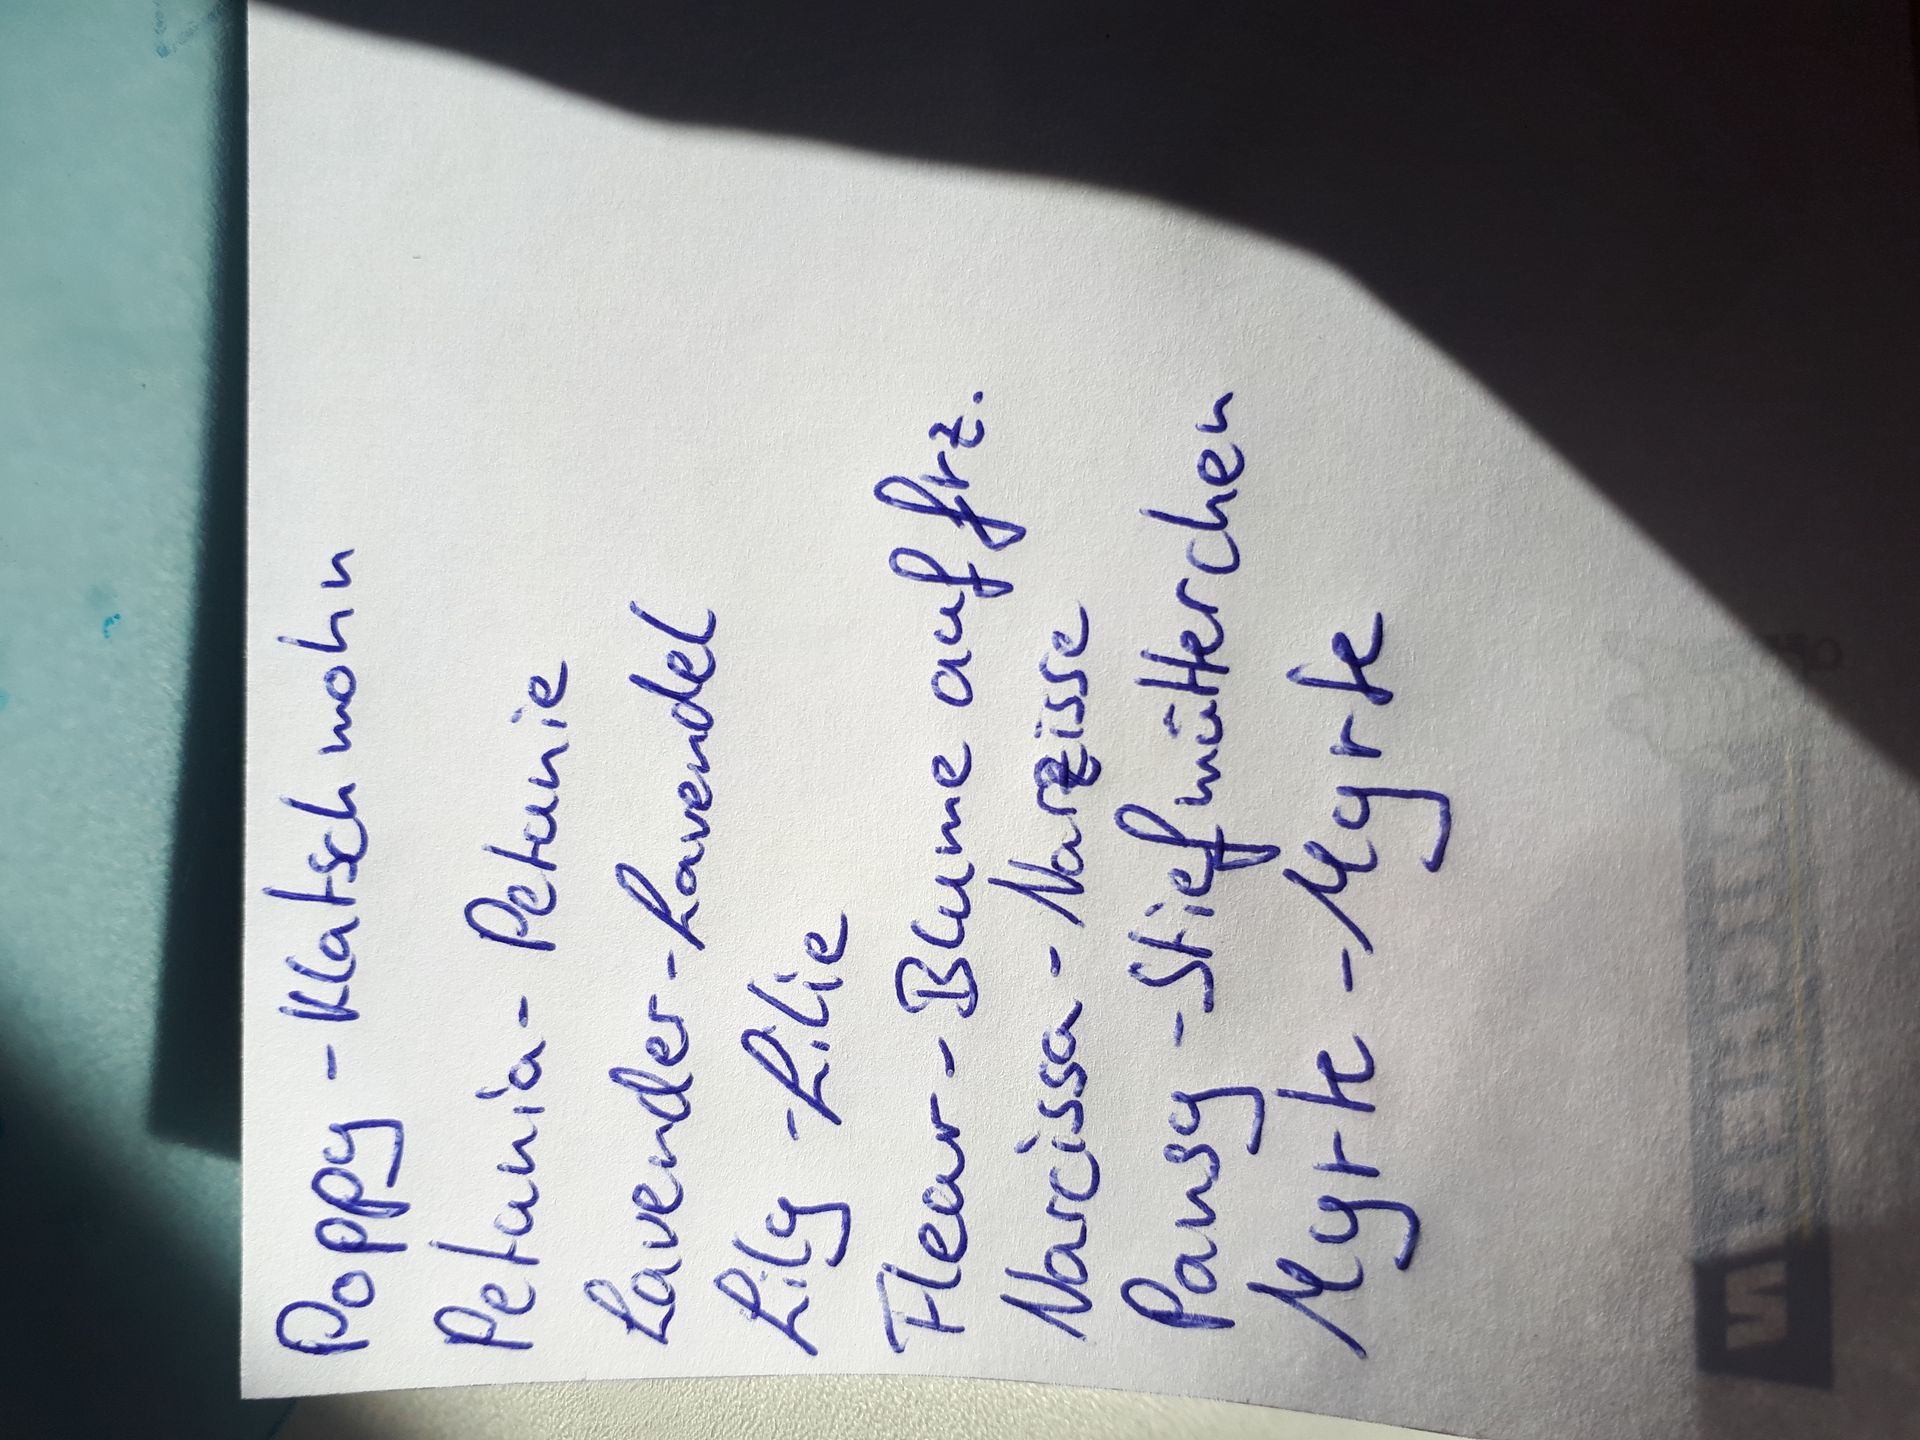 Poppy - Klatschmohn
Petunia - Petunie
Lavender - Lavendel
Lily - Lilie
Fleur - Blume auf frz.
Narcissa - Narzisse
Pansy - Stiefmütterchen
Myrte - Myrte